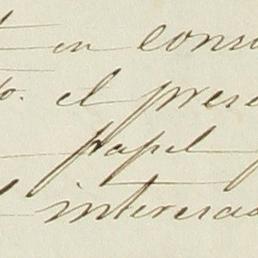 en cons
el prese
papel
interesad